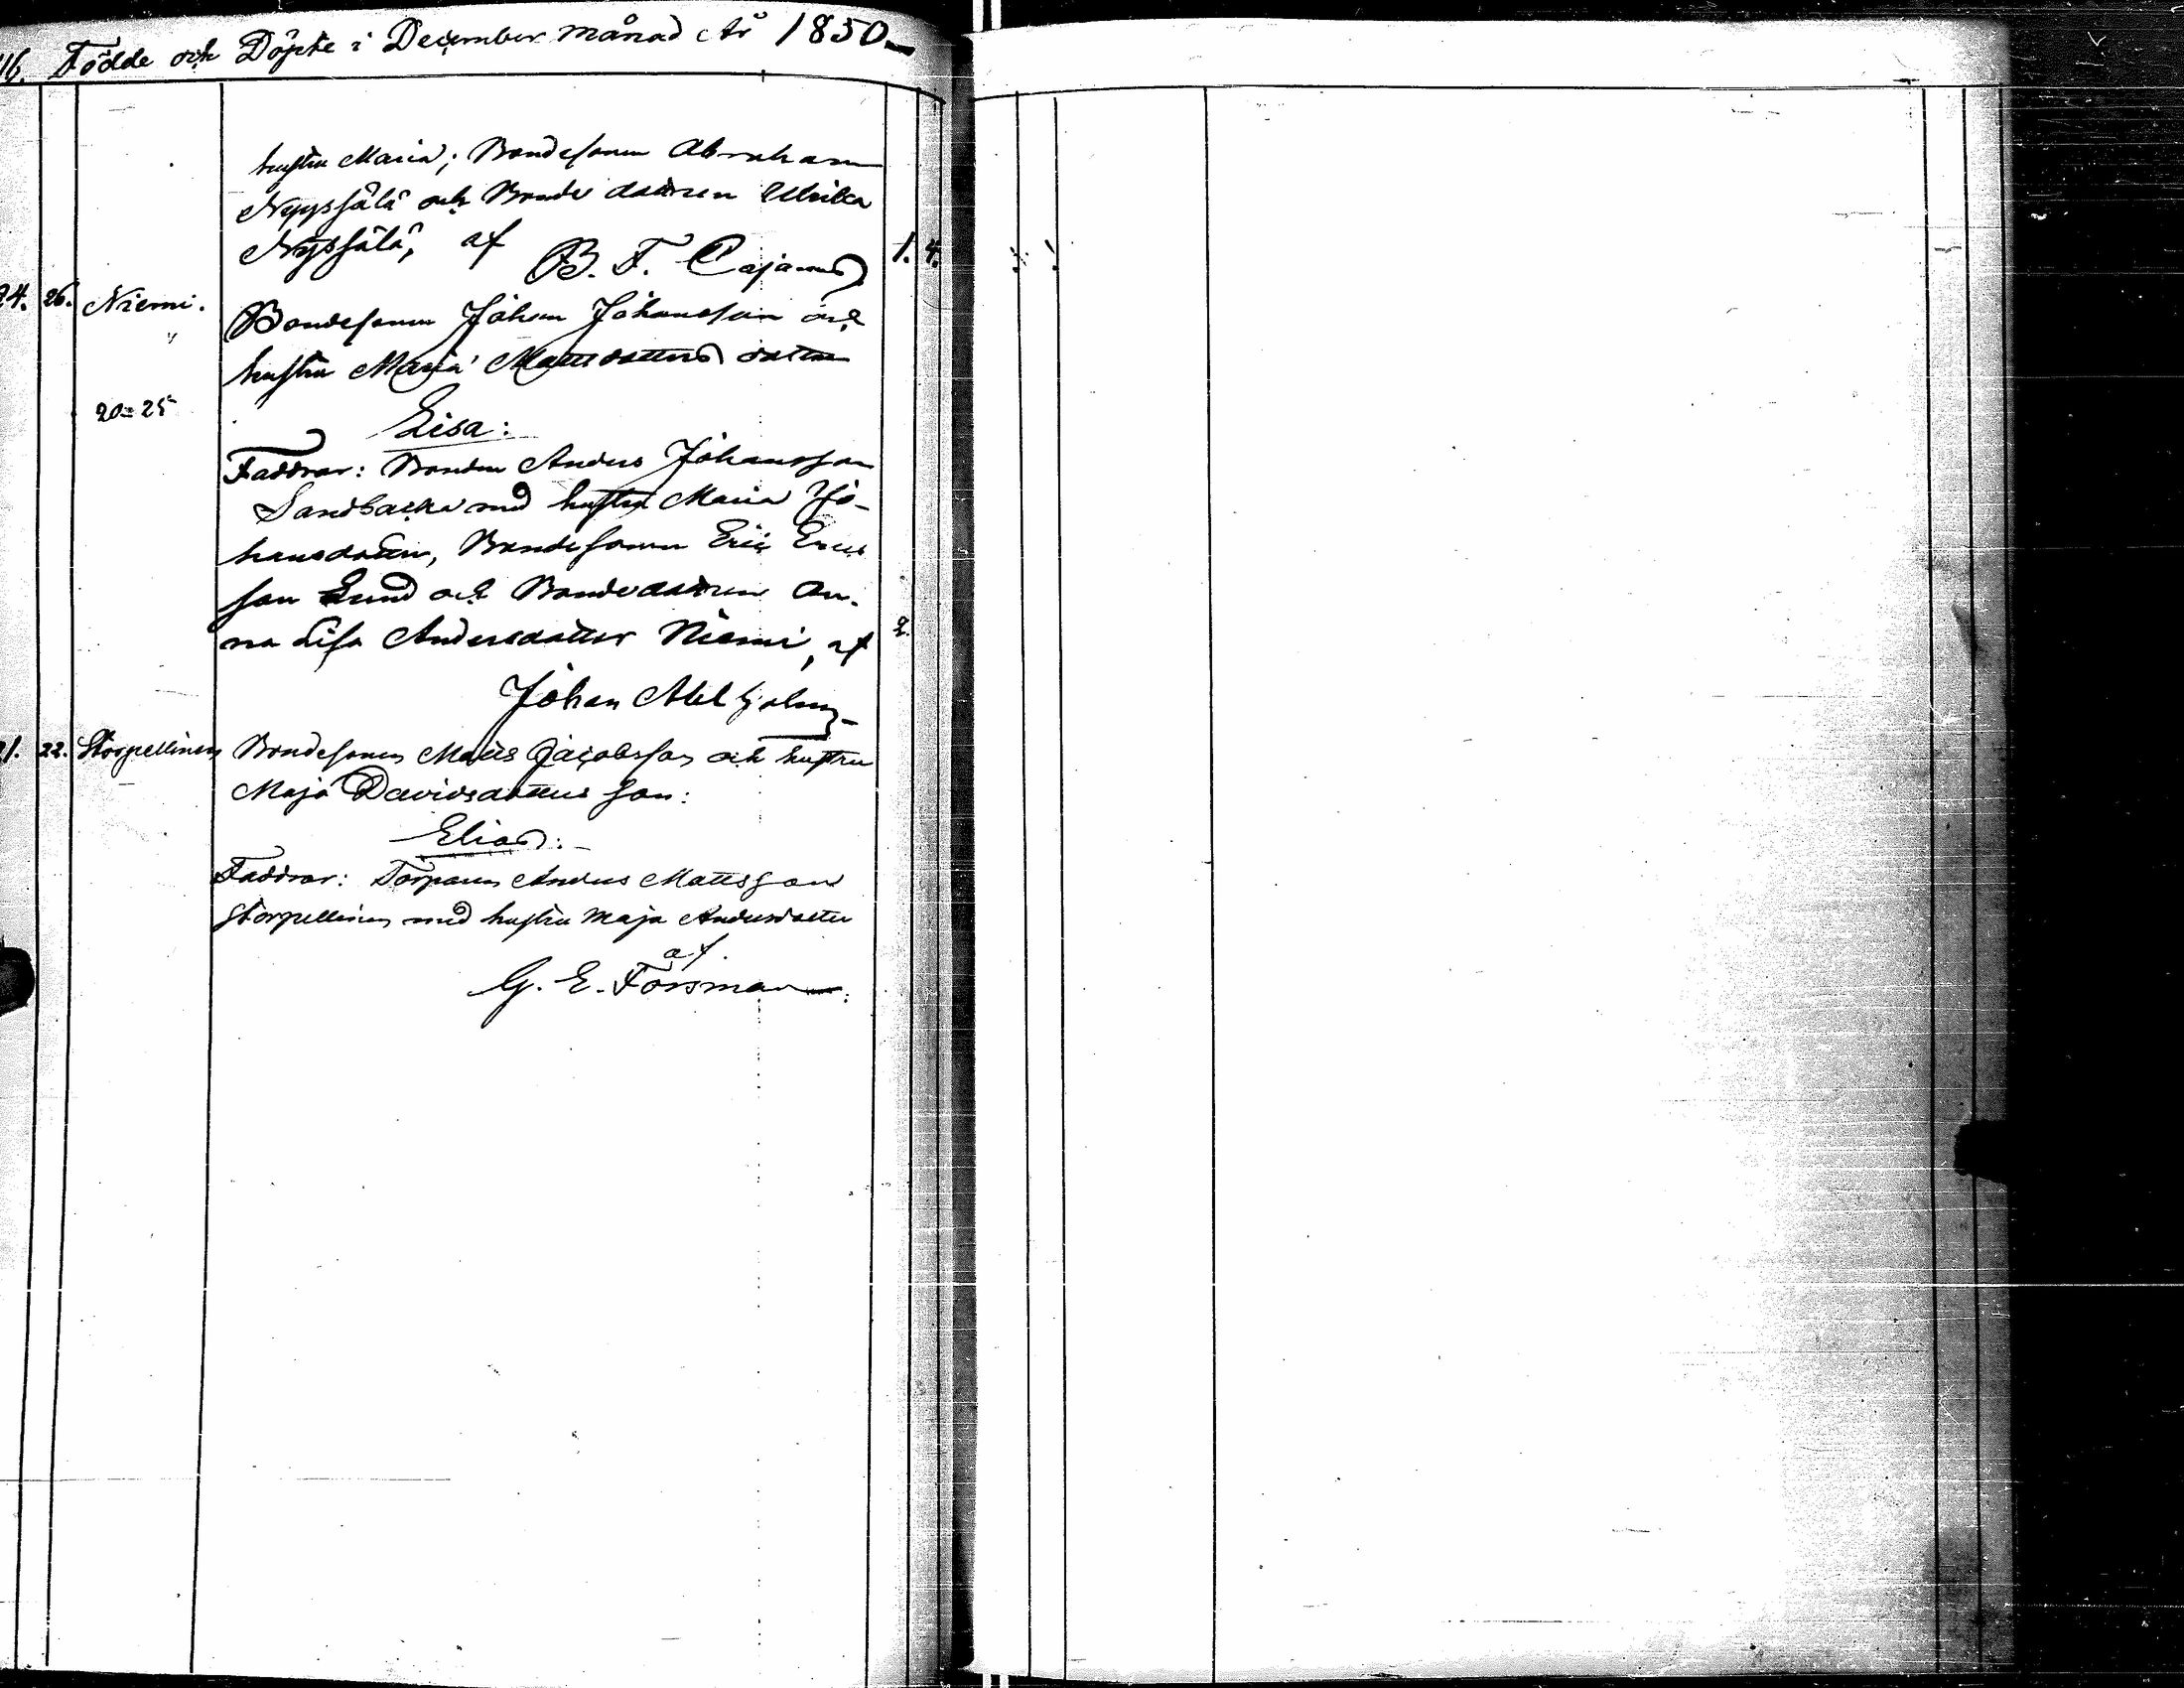 116. Födde och Döpte i December månad År 1850
hustru Maria; Bondesonen Abraham
Nyyssälä och Bonde dottren Ulrika
Nyssälä, af
B. F. Cajanus 1. 4.
24. 26. Niemi. Bondesonen Johan Johansson och
" hustru Maria Mattsdotters dotter
20=25
Lisa:
Faddrar: Bonden Anders Johansson
Sandbacka med hustru Maria Jo-
hansdotter, Bondesonen Eric Erics
son Lund och Bondedottren An-
na Lisa Andersdotter Niemi, af 2.
Johan Abel
21. 22. Storpellinen Bondesonen Matts Jacobsson och hustru
Maja Davidsdotters son:
Elias:
Faddrar: Torparen Anders Mattsson
Storpellinen med hustru Maja Andersdotter
af
G. E. Forsman